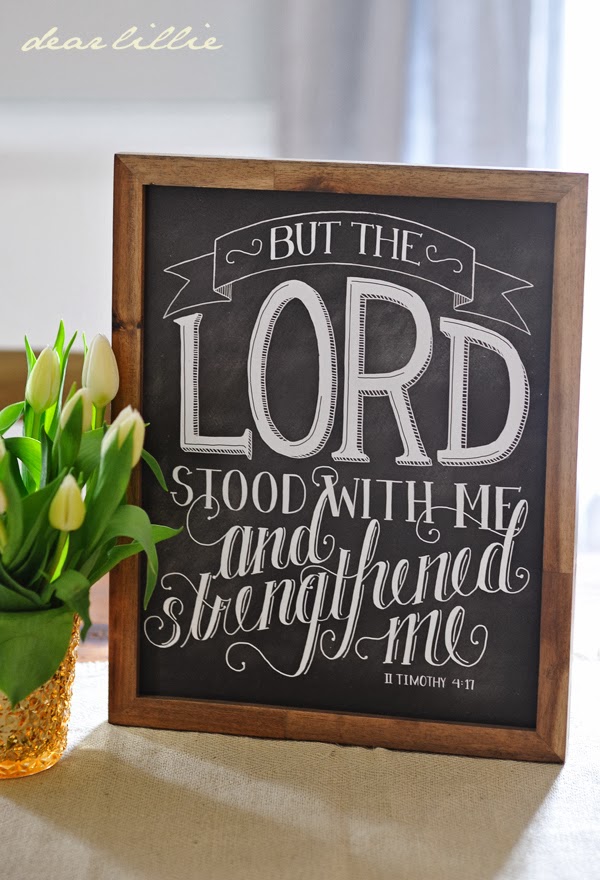 dear lillie
BUT THE
LORD
STOOD WITH ME
and
strengthened
me
II TIMOTHY 4:17